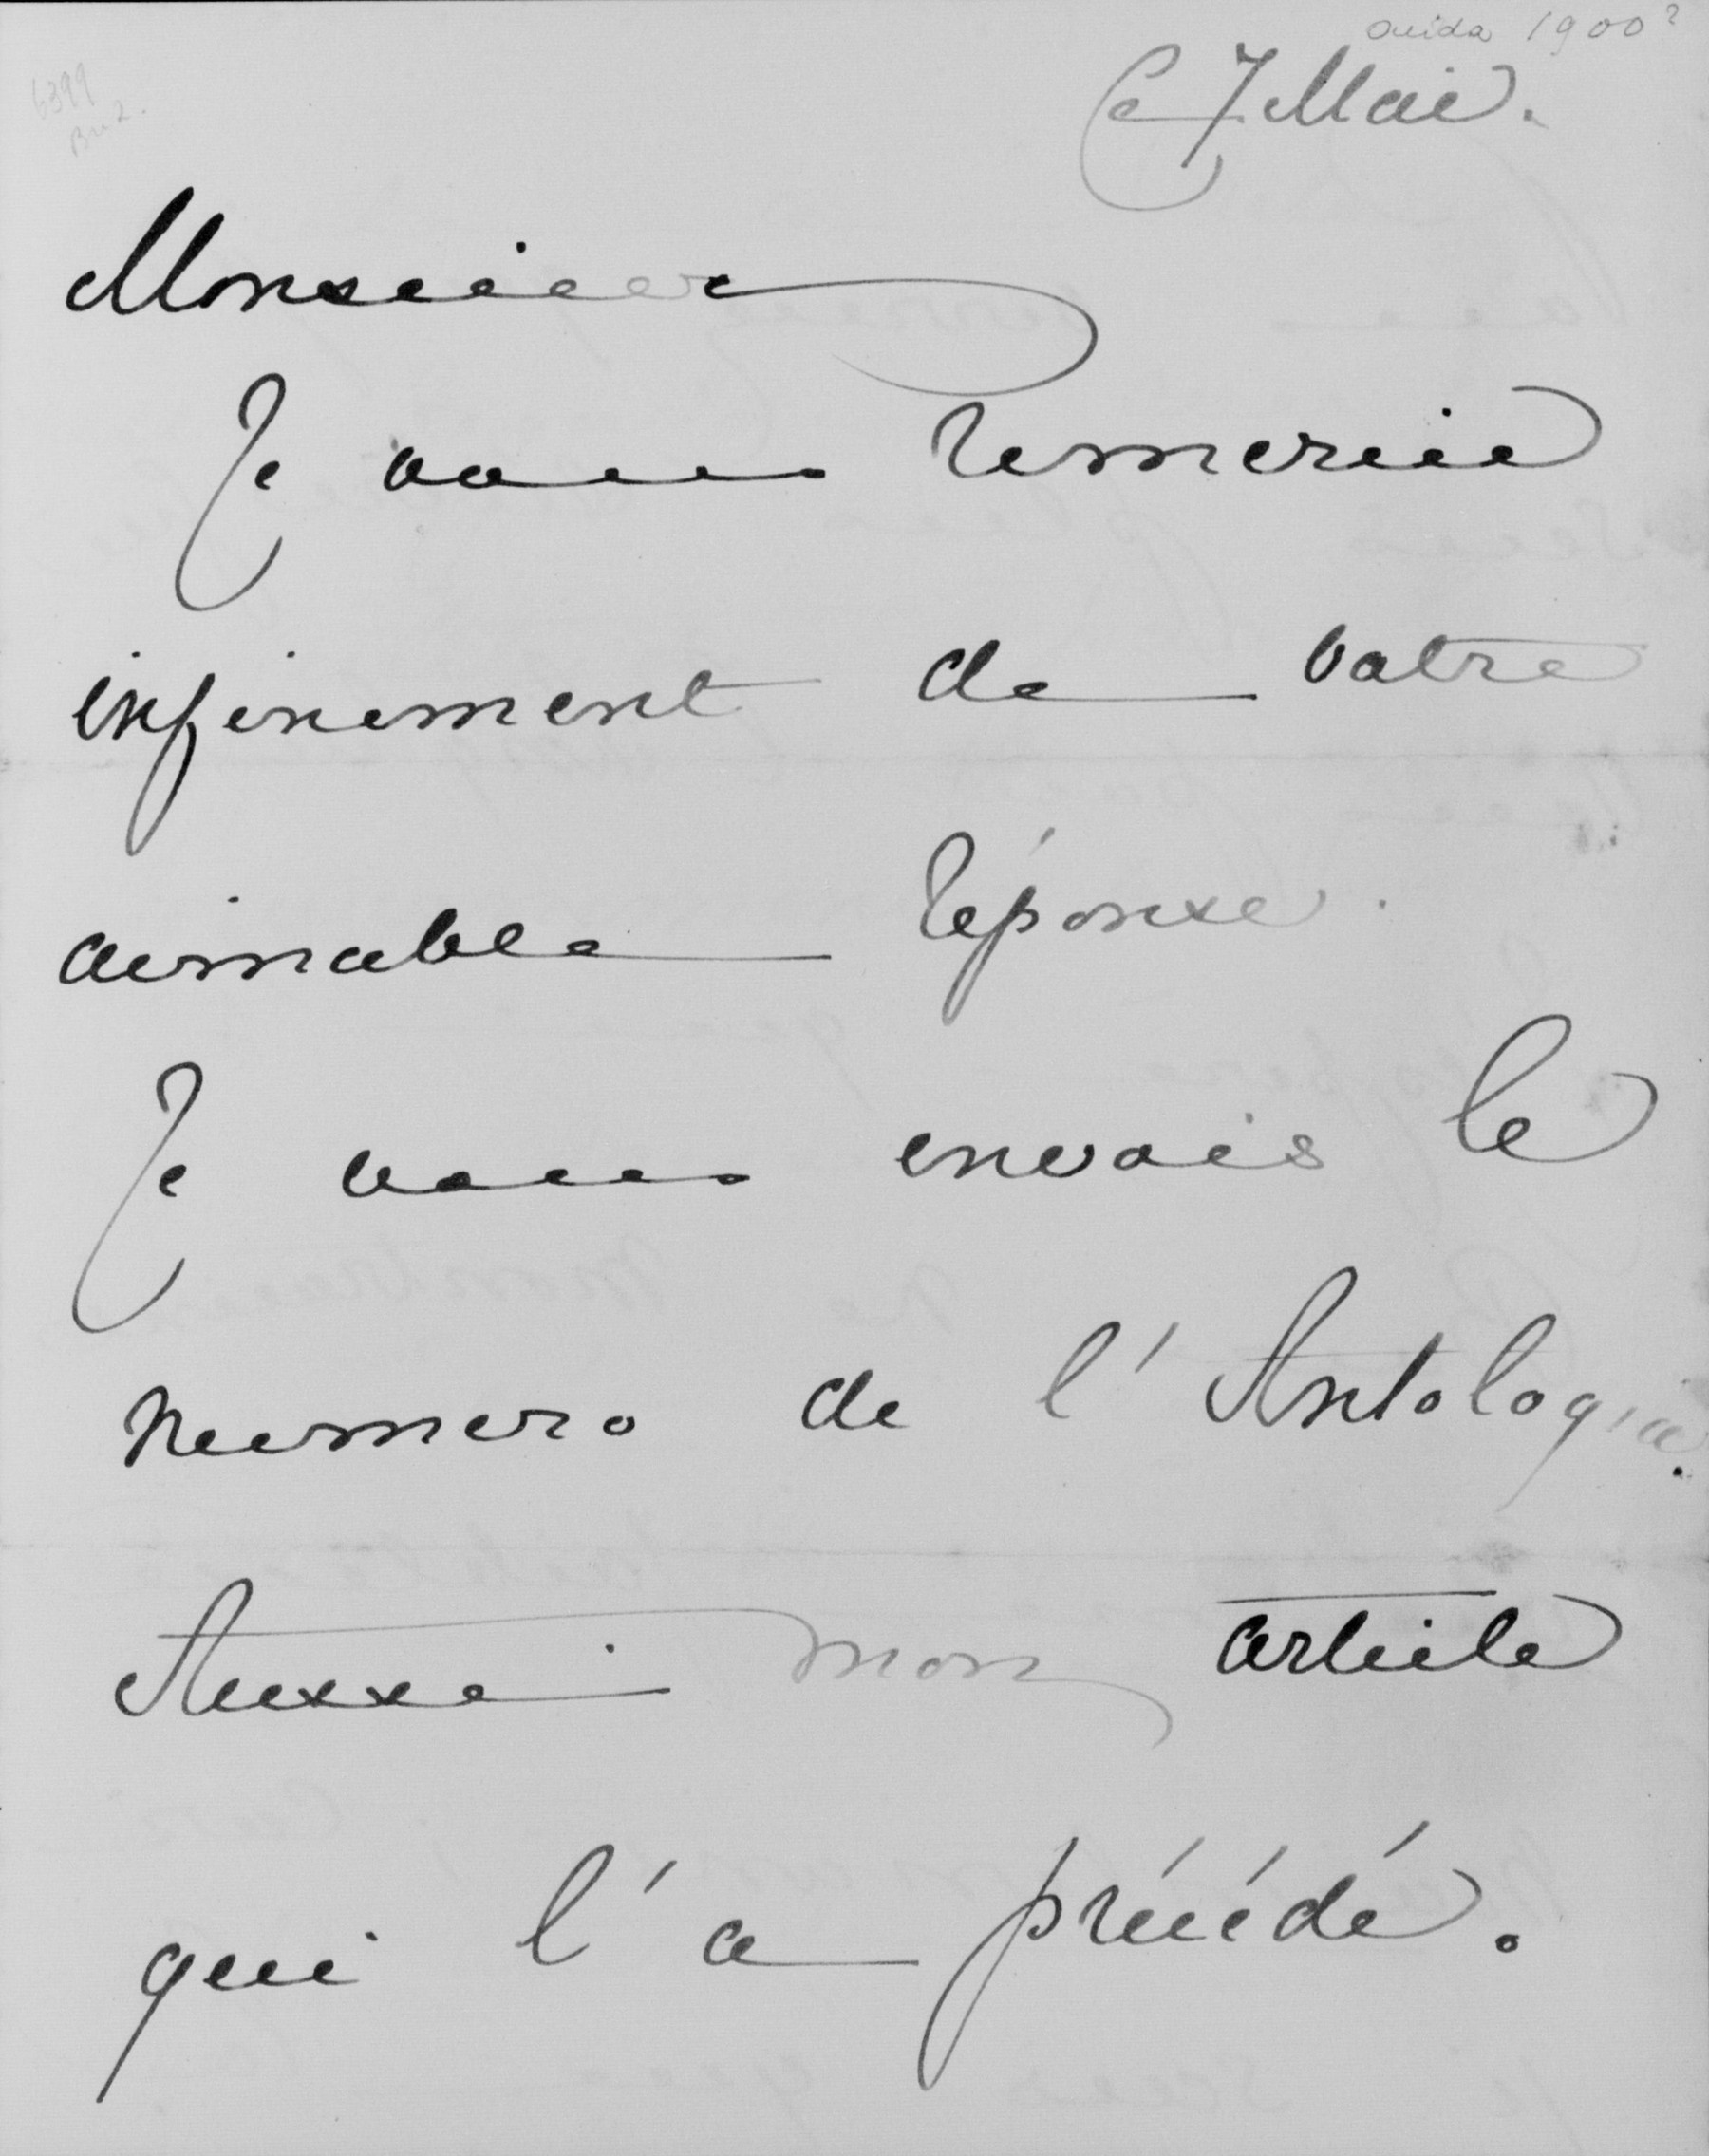 Ouida 1900?
6399
Br 2.
Ce 7 Mai.
Monsieur
Je vous remercie
infiniment de votre
aimable réponse.
Je vous envois le
numero de l'Antologia.
Aussi mon article
qui l'a précédé.